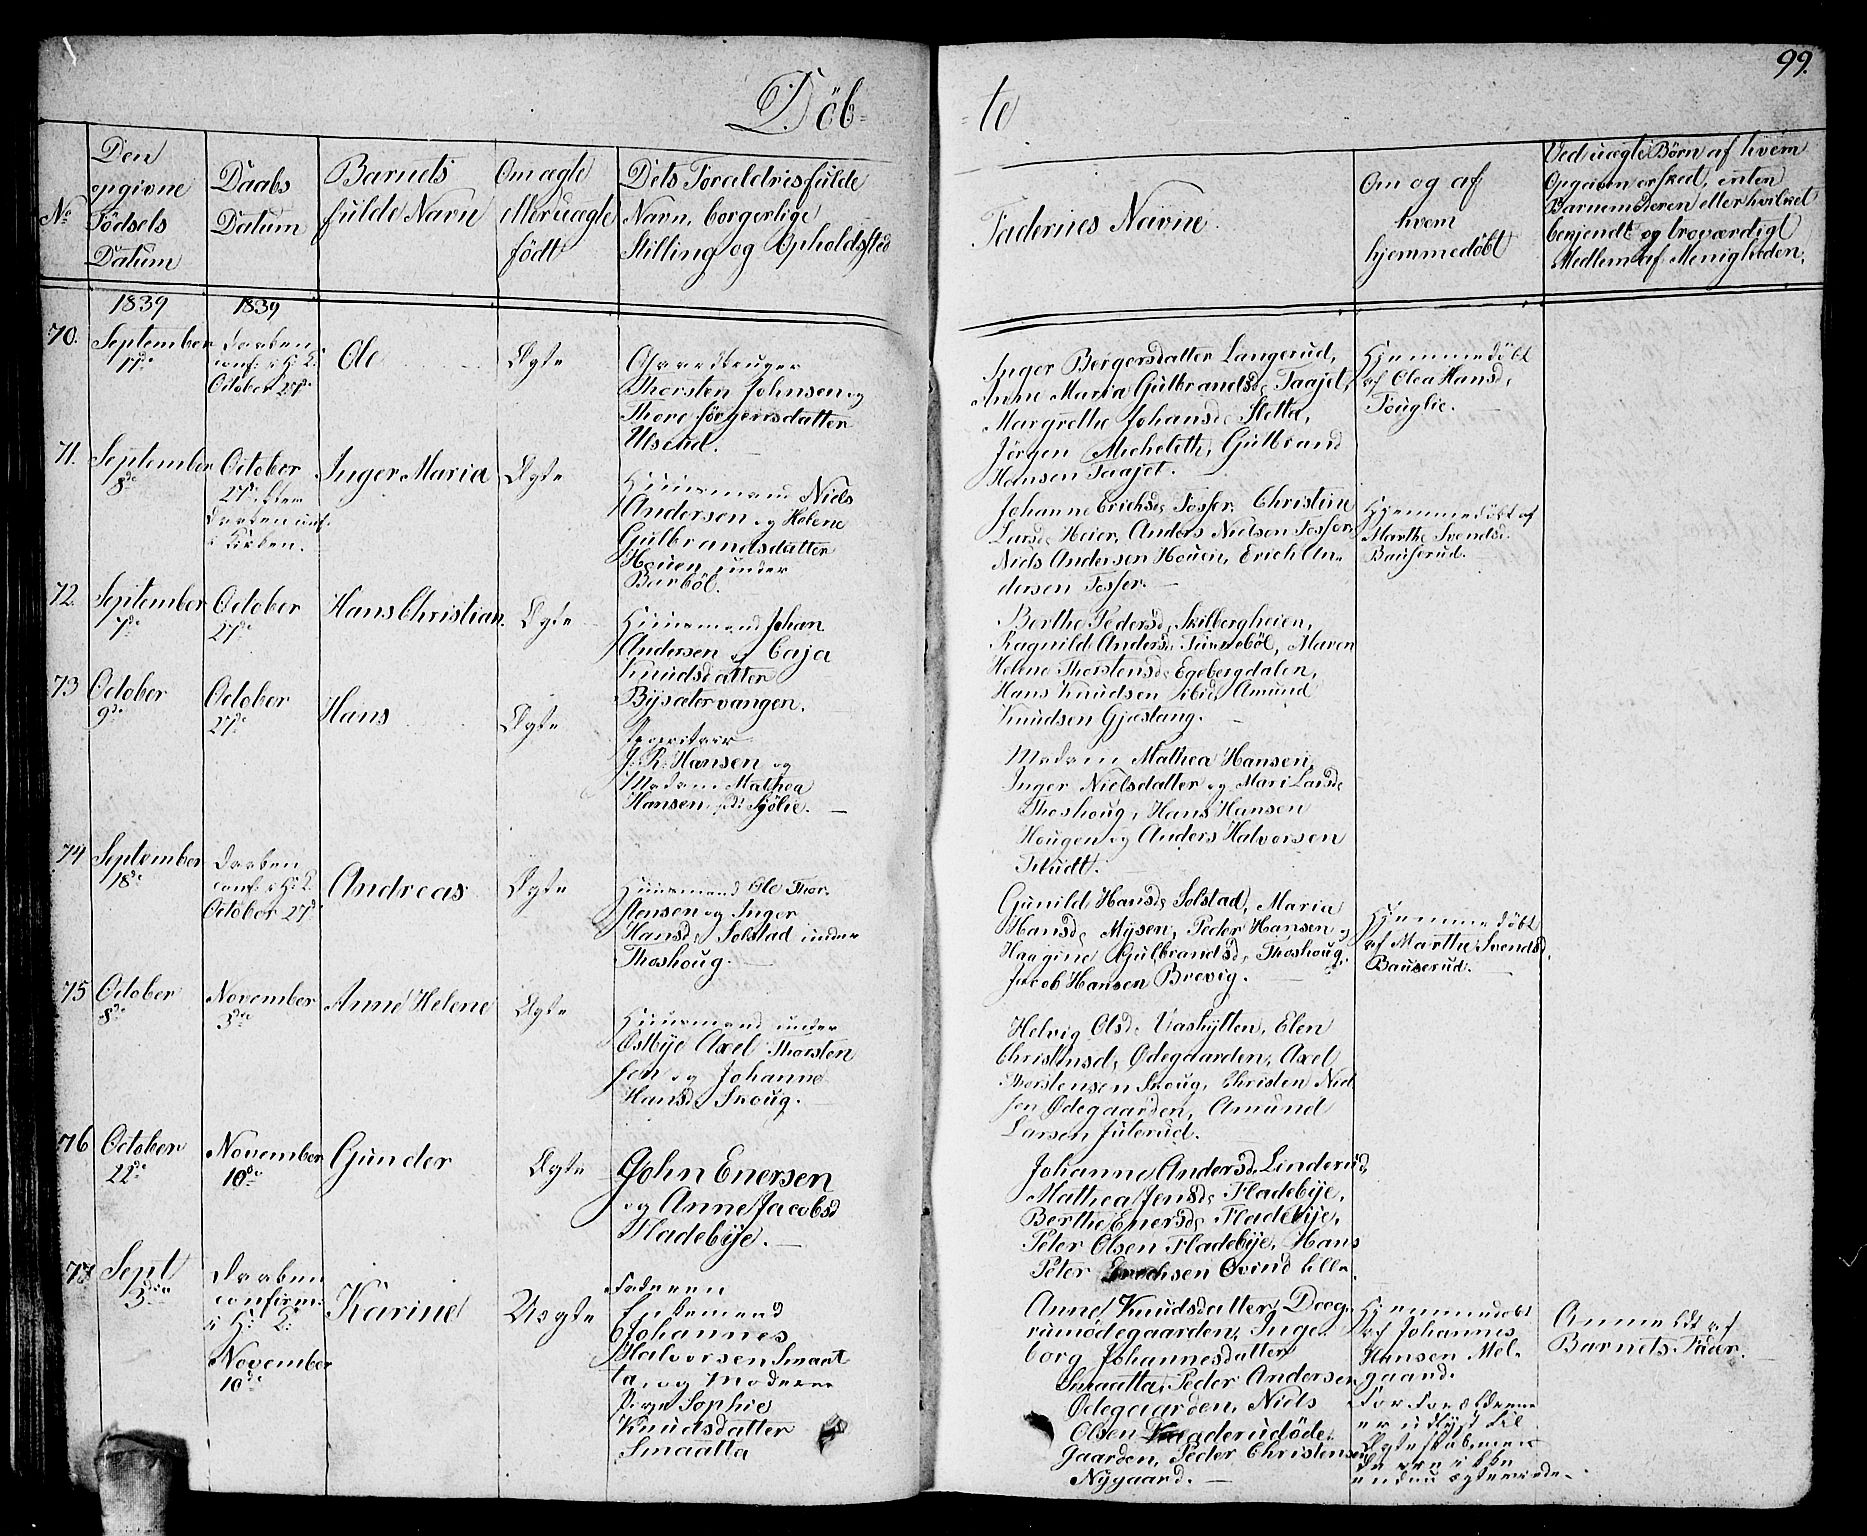 99.
Döb-
-te
No
Den
opgivne
Födsels
Datum
Daabs
Datum
Barnets
fulde Navn
Om ægte
eller uægte
födt
Dets Foraldris fulde
Navn, borgerlige
Stilling og Opholdssted
Fadernes Navne.
Om og af
hvem
hjemmedöbt
Ved uægte Börn af hvem
Opgaven er skeed, enten
Barnemoderen eller hvilket
bekjendt og troværdigt
Medlem af Menigheden.
1839
1839
70.
September
17de
Daaben
conf: i H: K:
October 27de
Ole
Ægte
Gaardbruger
Thorsten Johnsen og
Thore Jörgensdatter
Ulserud.
Inger Bergersdatter Langerud,
Anne Maria Gulbrandsd: Taajet,
Margrethe Johansd: Sletta,
Jörgen Micheleth, Gulbrand
Hansen Taajet.
Hjemmedöbt
af Olea Hansd:
Fouglie.
71.
September
8de
October
27de efter
Daaben conf.
i Kirken.
Inger Maria
Ægte
Huusmand Niels
Andersen og Helene
Gulbrandsdatter
Houen under
Burböl.
Johanne Erichsd: Fosser, Christine
Larsd: Heier, Anders Nielsen Fosser,
Niels Andersen Houen, Erich An-
dersen Fosser.
Hjemmedöbt af
Marthe Svendsd:
Bauserud.
72.
September
7de
October
27de
Hans Christian.
Ægte
Huusmand Johan
Andersen og Caja
Knudsdatter
Bysætervangen.
Berthe Pedersd: Skilbergheien,
Ragnild Andersd: Tunneböl, Maren
Helene Thorstensd: Egebergdalen,
Hans Knudsen ibid: Amund
Knudsen Gjæstang.
73
October
9de
October
27de
Hans
Ægte
J: R: Hansen og
Madam Mathea
Hansen, Sjölie.
Madam Mathea Hansen,
Inger Nielsdatter og Mari Larsd:
Thoshoug, Hans Hansen
Hougen og Anders Halvorsen
Fludt.
74
September
18de
Daaben
conf: i H: K:
October 27de
Andreas
Ægte
Huusmand Ole Thor-
stensen og Inger
Hansd: Solstad under
Thoshoug.
Gunild Hansd: Solstad, Maria
Hansd: Mysen, Peder Hansen og
Haagine Gulbrandsd: Thoshoug,
Jacob Hansen Brevig.
Hjemmedöbt
af Marthe Svendsd.
Bauserud.
75
October
8de
November
3de
Anne Helene
Ægte
Huusmand under
Ostbye Axel Thorsten
sen og Johanne
Hansd: Skoug.
Helvig Olsd: Vashytten, Elen
Christensd: Ödegaarden, Axel
Thorstensen Skoug, Christen Niel
sen Ödegaarden, Amund
Larsen Julerud.
76
October
22de
November
10de
Gunder
Ægte
John Enersen
og Anne Jacobsd
Fladebye.
Johanne Andersd: Linderud,
Mathea Jensd: Fladebye,
Berthe Enersd: Fladebye,
Peter Olsen Fladebye, Hans
Peter Erichsen Övind lille.
77
Sept
3die
Daaben
confirm:
i H: K:
November
10de
Karine
Uægte
Faderen
Enkemand
Johannes
Halvorsen Smaat
ta, og Moderen
Pige Sophie
Knudsdatter
Smaatta
Anne Knudsdatter Dæg-
rumödegaarden, Inge-
borg Johannesdatter
Smaatta, Peder Andersen
Ödegaarden, Niels
Olsen aderudöde-
gaarden, Peder Christensen
Nygaard.
Hjemmedöbt
af Johannes
Hansen Mel-
gaard.
For Forældrene
er udlyst til
Ægteskab men
de ere ikke
endnu ægteviede.
Anmeldt af
Barnets Fader.